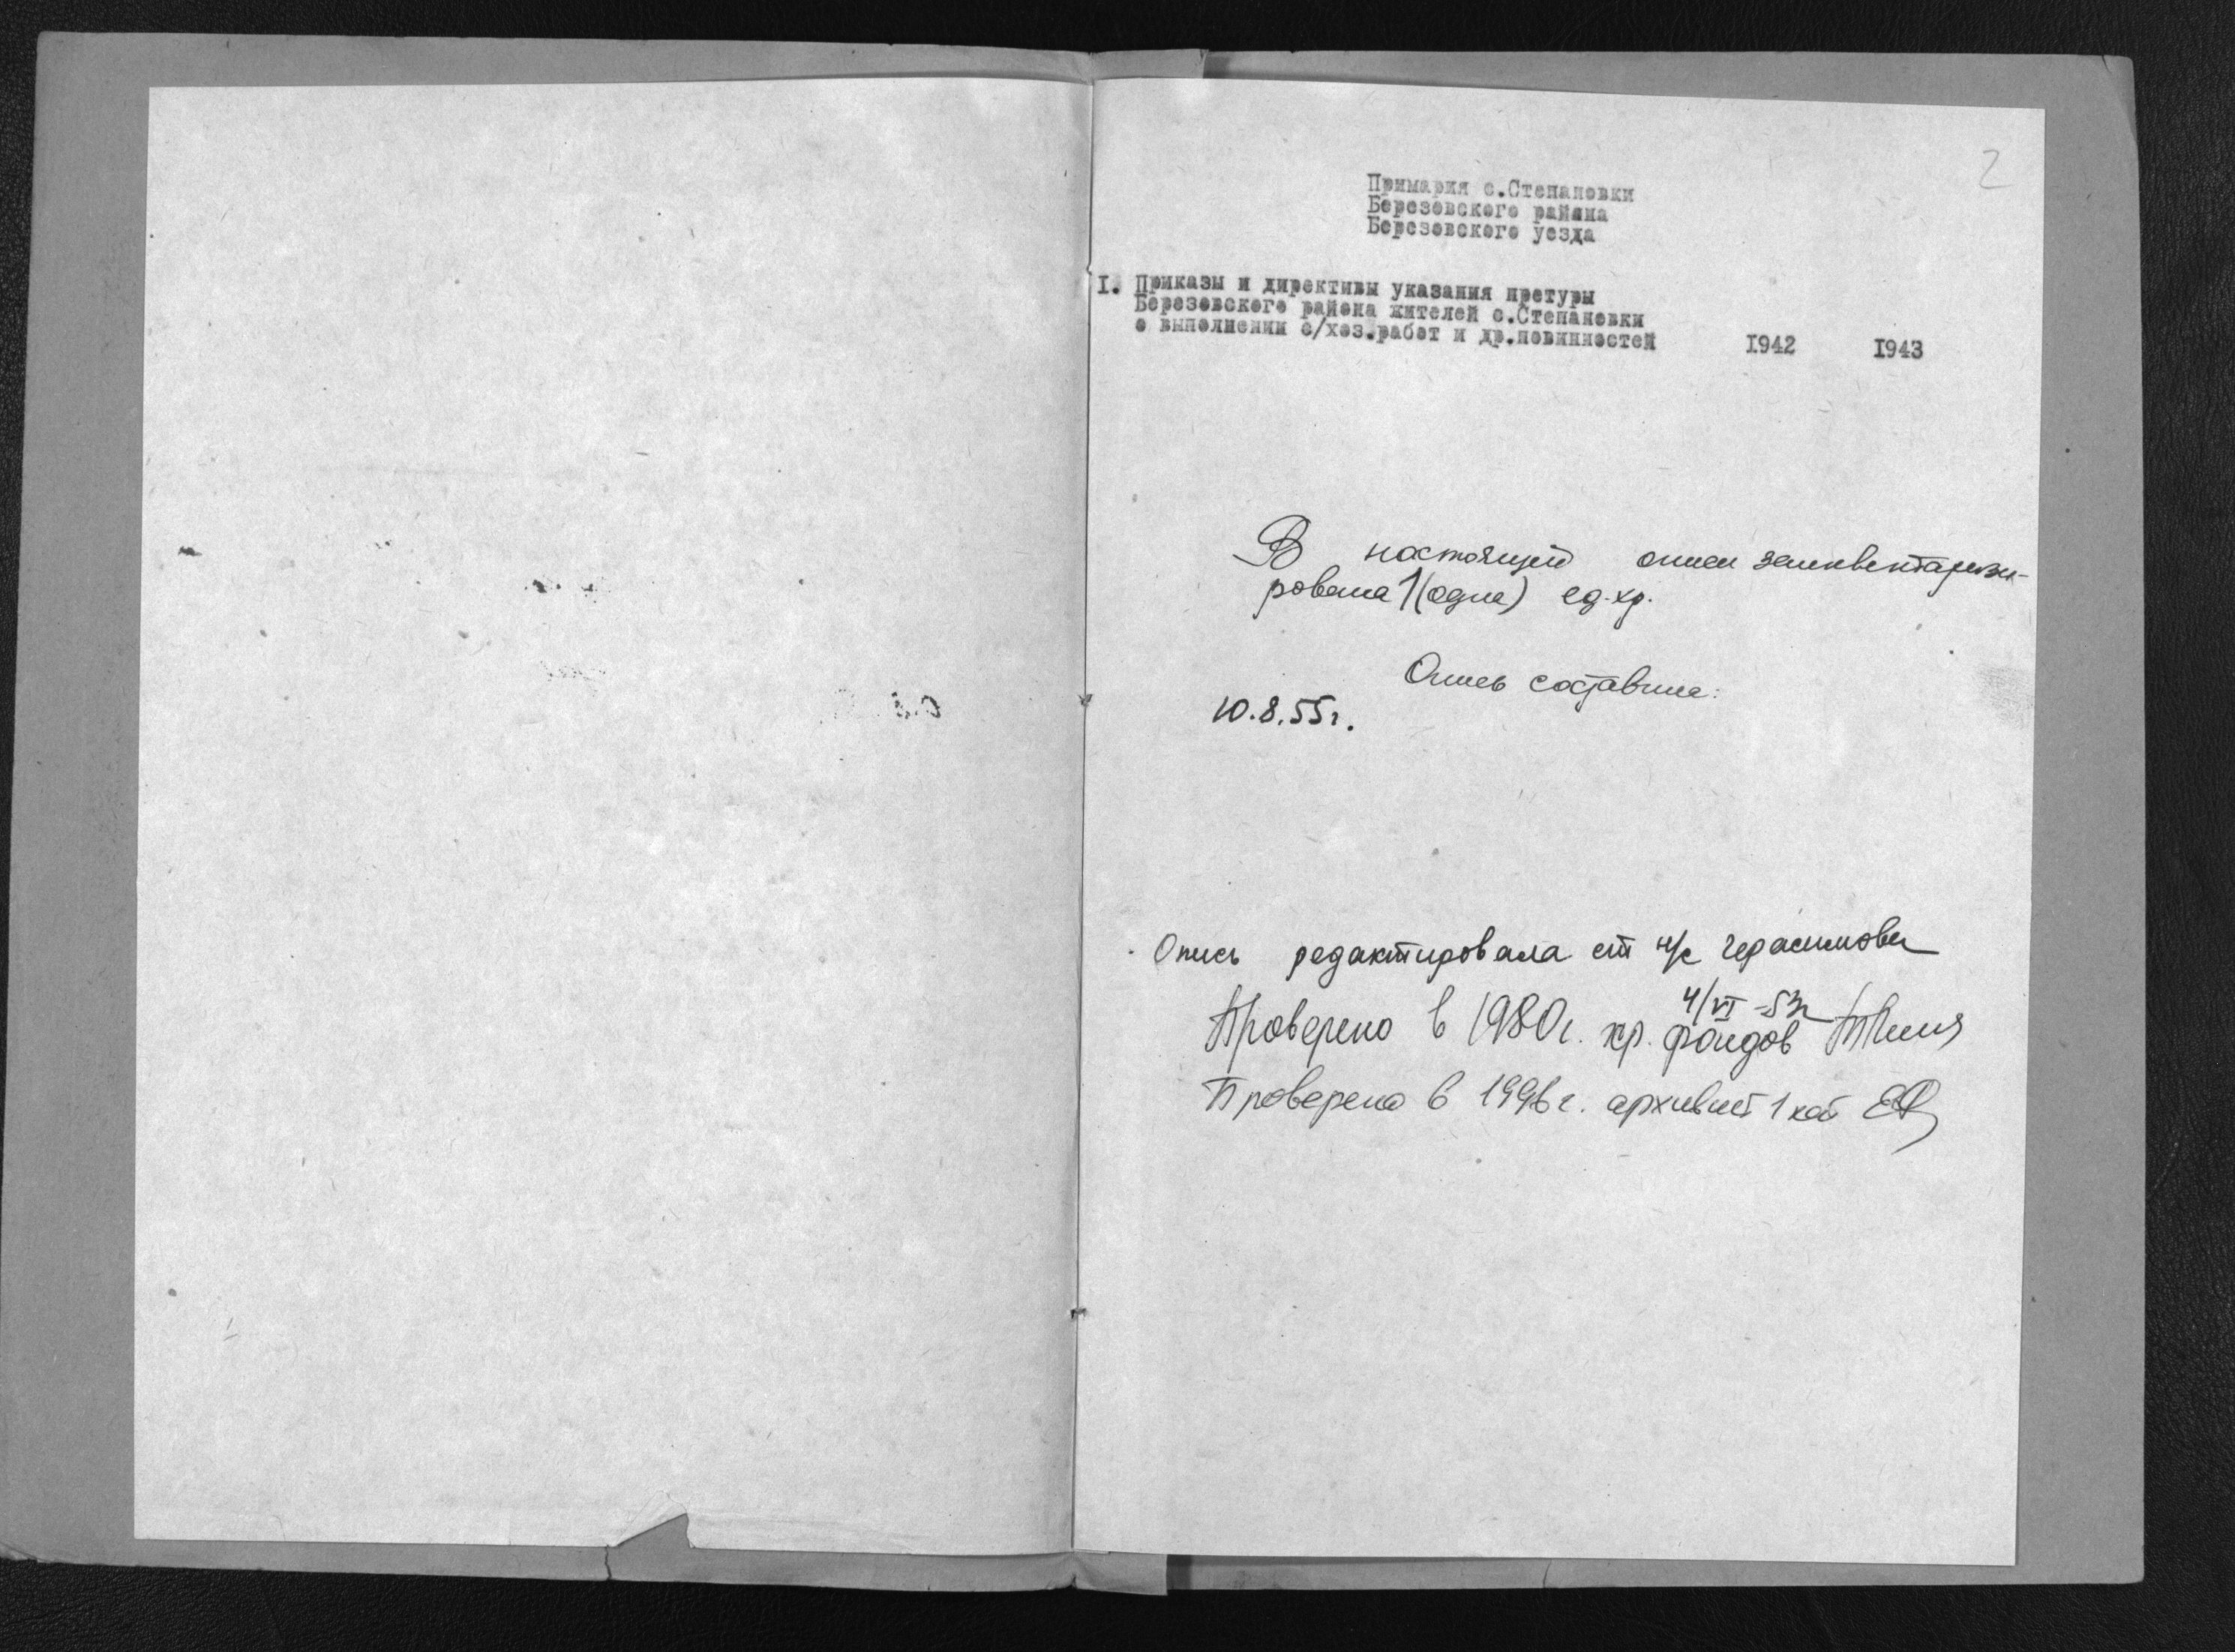 2
Примария с.Степановки
Березовского района
Березовского уезда
I. Приказы и директивы указания претуры
Березовского района жителей с.Степановки
о выполнении с/хоз.работ и др.повинностей 1942 1943
В настоящей описи заинвентаризи-
рована 1 (одна) ед. хр.
Опись составила:
10.8.55г.
Опись редактировала ст н/с Герасимова
4/VI-53г
Проверено в 1980г. хр. фондов
Проверено в 1996г. архивист 1 кат